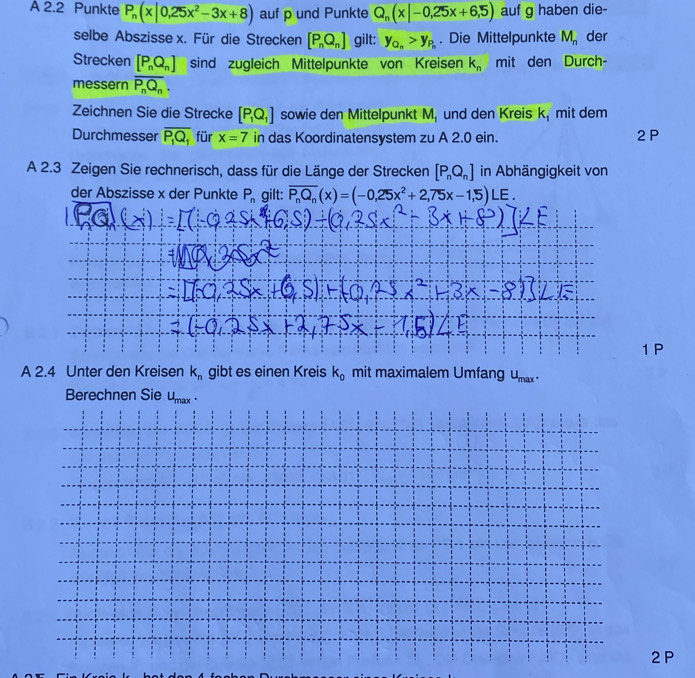 A 2.2 Punkte Pₙ(x|0,25x²−3x+8) auf p und Punkte Qₙ(x|−0,25x+6,5) auf g haben die-
selbe Abszisse x. Für die Strecken [PₙQₙ] gilt: y_Qₙ > y_Pₙ. Die Mittelpunkte Mₙ der
Strecken [PₙQₙ] sind zugleich Mittelpunkte von Kreisen kₙ mit den Durch-
messern PₙQₙ.
Zeichnen Sie die Strecke [P₁Q₁] sowie den Mittelpunkt M₁ und den Kreis k₁ mit dem
Durchmesser P₁Q₁ für x = 7 in das Koordinatensystem zu A 2.0 ein.
2 P
A 2.3 Zeigen Sie rechnerisch, dass für die Länge der Strecken [PₙQₙ] in Abhängigkeit von
der Abszisse x der Punkte Pₙ gilt: PₙQₙ(x) = (−0,25x²+2,75x−1,5) LE.
(x) = [(-0,25x+6,5)-(0,25x²-3x+8)]LE
= [(-0,25x+6,5)+(-0,25x²+3x-8)]LE
= (-0,25x+2,75x-1,5)LE
1 P
A 2.4 Unter den Kreisen kₙ gibt es einen Kreis k₀ mit maximalem Umfang u_max.
Berechnen Sie u_max.
2 P